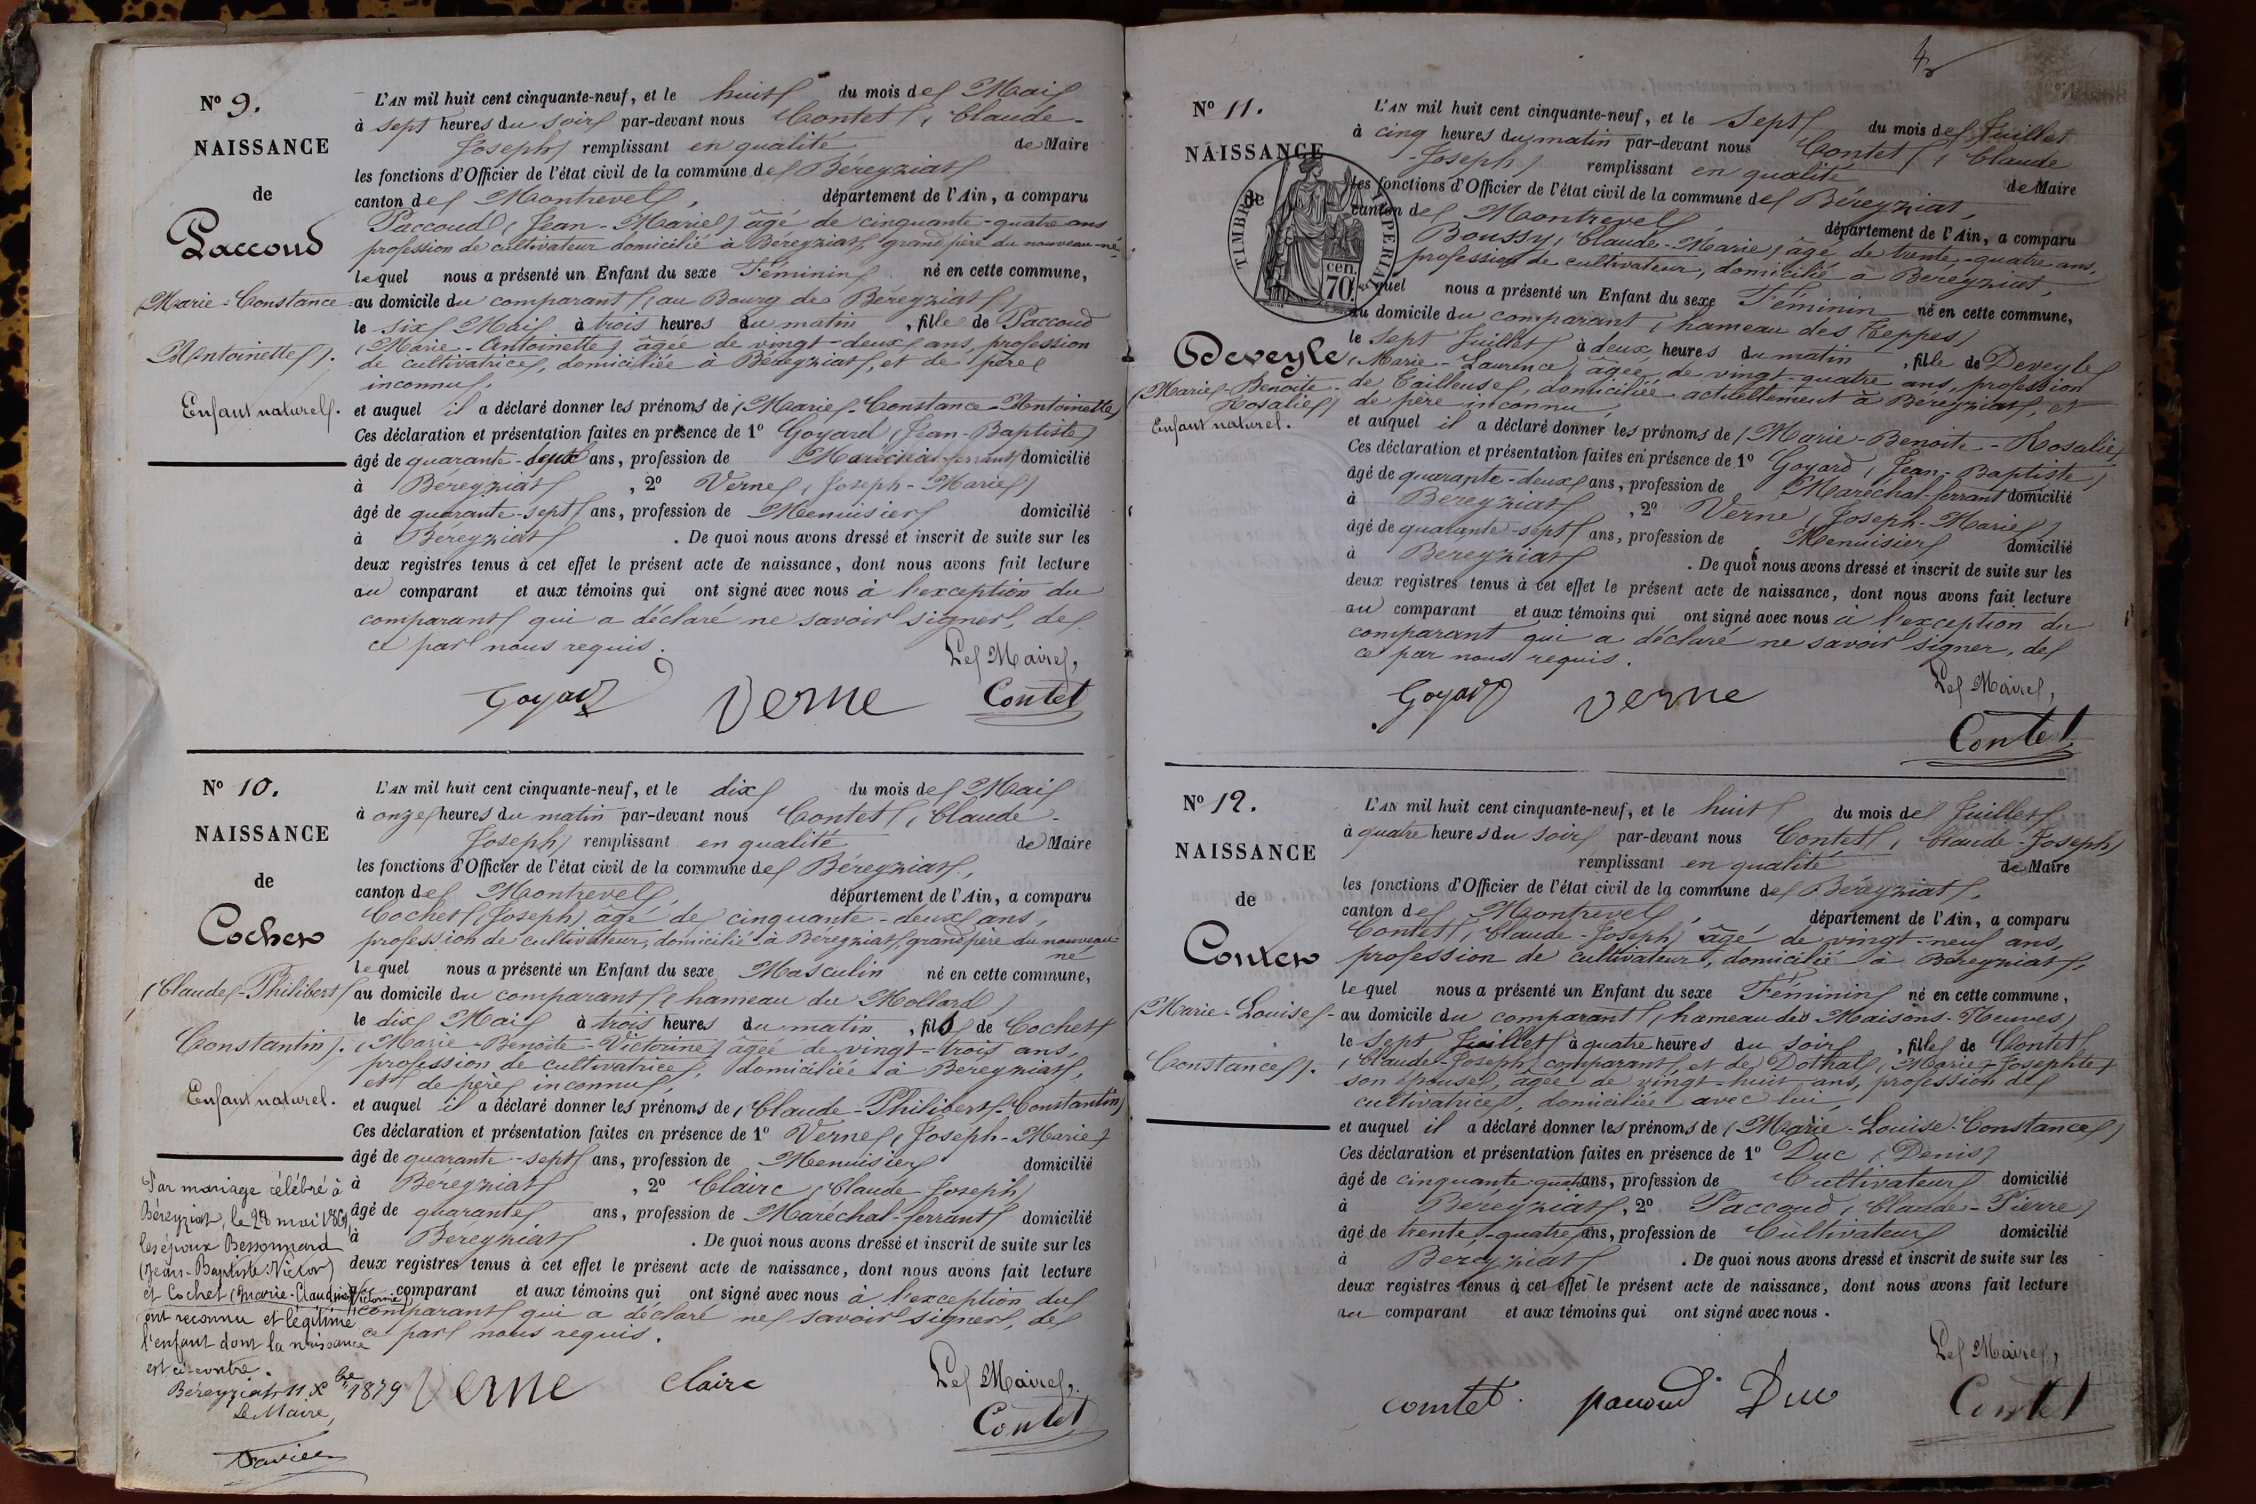 N° 9.
NAISSANCE
de
Paccoud
(Marie-Constance-
Antoinette).
Enfant naturel.
L'AN mil huit cent cinquante-neuf, et le huit du mois de Mai
à sept heures du soir par-devant nous Contet (Claude-
Joseph) remplissant en qualité de Maire
les fonctions d'Officier de l'état civil de la commune de Béreyziat
canton de Montrevel, département de l'Ain, a comparu
Paccoud (Jean-Marie) âgé de cinquante-quatre ans
profession de cultivateur domicilié à Béreyziat grand père du nouveau-né
lequel nous a présenté un Enfant du sexe Féminin né en cette commune,
au domicile du comparant (au Bourg de Béreyziat)
le six Mai à trois heures du matin, fille de Paccoud
(Marie-Antoinette) âgée de vingt-deux ans, profession
de cultivatrice, domiciliée à Béreyziat, et de père
inconnu,
et auquel il a déclaré donner les prénoms de (Marie-Constance-Antoinette)
Ces déclaration et présentation faites en présence de 1° Goyard (Jean-Baptiste)
âgé de quarante-deux ans, profession de Maréchal-ferrant domicilié
à Béreyziat, 2° Verne (Joseph-Marie)
âgé de quarante-sept ans, profession de Menuisier domicilié
à Béreyziat. De quoi nous avons dressé et inscrit de suite sur les
deux registres tenus à cet effet le présent acte de naissance, dont nous avons fait lecture
au comparant et aux témoins qui ont signé avec nous à l'exception du
comparant qui a déclaré ne savoir signer, de
ce par nous requis.
Le Maire,
Goyard Verne Contet
N° 10.
NAISSANCE
de
Cochet
(Claude-Philibert
Constantin).
Enfant naturel.
L'AN mil huit cent cinquante-neuf, et le dix du mois de Mai
à onze heures du matin par-devant nous Contet (Claude-
Joseph) remplissant en qualité de Maire
les fonctions d'Officier de l'état civil de la commune de Béreyziat,
canton de Montrevel, département de l'Ain, a comparu
Cochet (Joseph) âgé de cinquante-deux ans,
profession de cultivateur, domicilié à Béreyziat, grand père du nouveau
né
lequel nous a présenté un Enfant du sexe Masculin né en cette commune,
au domicile du comparant (hameau du Mollard)
le dix Mai à trois heures du matin, fils de Cochet
(Marie-Benoite-Victorine) âgée de vingt-trois ans,
profession de cultivatrice, domiciliée à Béreyziat,
et de père inconnu,
et auquel il a déclaré donner les prénoms de (Claude-Philibert-Constantin)
Ces déclaration et présentation faites en présence de 1° Verne (Joseph-Marie)
âgé de quarante-sept ans, profession de Menuisier domicilié
à Béreyziat, 2° Claire (Claude Joseph)
âgé de quarante ans, profession de Maréchal-ferrant domicilié
à Béreyziat. De quoi nous avons dressé et inscrit de suite sur les
deux registres tenus à cet effet le présent acte de naissance, dont nous avons fait lecture
comparant et aux témoins qui ont signé avec nous à l'exception du
comparant qui a déclaré ne savoir signer, de
ce par nous requis.
Le Maire,
Verne Claire Contet
Par mariage célébré à
Béreyziat, le 28 mai
les époux Bessonnard
(Jean-Baptiste-Victor)
et Cochet (Marie-Claudine
Victorine)
ont reconnu et légitimé
l'enfant dont la naissance
est ci-contre.
Béreyziat, 11 Xbre 1879
Le Maire,
4
N° 11.
NAISSANCE
de
TIMBRE IMPERIAL
70 cen.
Deveyle
(Marie-Benoite-
Rosalie)
Enfant naturel.
L'AN mil huit cent cinquante-neuf, et le sept du mois de Juillet
à cinq heures du matin par-devant nous Contet (Claude
-Joseph) remplissant en qualité de Maire
les fonctions d'Officier de l'état civil de la commune de Béreyziat,
canton de Montrevel département de l'Ain, a comparu
Boussy (Claude-Marie) âgé de trente-quatre ans,
profession de cultivateur, domicilié à Béreyziat,
lequel nous a présenté un Enfant du sexe Féminin né en cette commune,
au domicile du comparant (hameau des Teppes)
le sept Juillet à deux heures du matin, fille de Deveyle
(Marie-Laurence) âgée de vingt-quatre ans, profession
de Tailleuse, domiciliée actuellement à Béreyziat, et
de père inconnu,
et auquel il a déclaré donner les prénoms de (Marie-Benoite-Rosalie)
Ces déclaration et présentation faites en présence de 1° Goyard (Jean-Baptiste)
âgé de quarante-deux ans, profession de Maréchal-ferrant domicilié
à Béreyziat, 2° Verne (Joseph-Marie)
âgé de quarante-sept ans, profession de Menuisier domicilié
à Béreyziat. De quoi nous avons dressé et inscrit de suite sur les
deux registres tenus à cet effet le présent acte de naissance, dont nous avons fait lecture
au comparant et aux témoins qui ont signé avec nous à l'exception du
comparant qui a déclaré ne savoir signer, de
ce par nous requis.
Le Maire,
Goyard Verne
Contet
N° 12.
NAISSANCE
de
Contet
(Marie-Louise-
Constance).
L'AN mil huit cent cinquante-neuf, et le huit du mois de Juillet
à quatre heures du soir par-devant nous Contet (Claude-Joseph)
remplissant en qualité de Maire
les fonctions d'Officier de l'état civil de la commune de Béreyziat,
canton de Montrevel, département de l'Ain, a comparu
Contet (Claude-Joseph) âgé de vingt-neuf ans,
profession de cultivateur, domicilié à Béreyziat,
lequel nous a présenté un Enfant du sexe Féminin né en cette commune,
au domicile du comparant (hameau des Maisons-Neuves)
le sept Juillet à quatre heures du soir, fille de Contet
(Claude-Joseph) comparant, et de Dothal (Marie-Josephte)
son épouse, âgée de vingt-huit ans, profession de
cultivatrice, domiciliée avec lui,
et auquel il a déclaré donner les prénoms de (Marie-Louise-Constance)
Ces déclaration et présentation faites en présence de 1° Duc (Denis)
âgé de cinquante-quatre ans, profession de Cultivateur domicilié
à Béreyziat, 2° Paccoud (Claude-Pierre)
âgé de trente-quatre ans, profession de Cultivateur domicilié
à Béreyziat. De quoi nous avons dressé et inscrit de suite sur les
deux registres tenus à cet effet le présent acte de naissance, dont nous avons fait lecture
au comparant et aux témoins qui ont signé avec nous.
Le Maire,
comtet paccoud Duc Contet